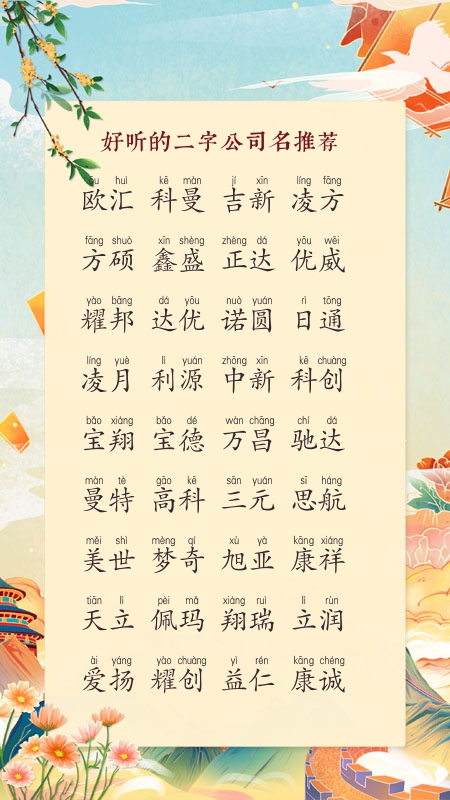 好听的二字公司名推荐
ōu huì kē màn jí xīn líng fāng
欧汇 科曼 吉新 凌方
fāng shuò xīn shèng zhèng dá yōu wēi
方硕 鑫盛 正达 优威
yào bāng dá yōu nuò yuán rì tōng
耀邦 达优 诺圆 日通
líng yuè lì yuán zhōng xīn kē chuàng
凌月 利源 中新 科创
bǎo xiáng bǎo dé wàn chāng chí dá
宝翔 宝德 万昌 驰达
màn tè gāo kē sān yuán sī háng
曼特 高科 三元 思航
měi shì mèng qí xù yà kāng xiáng
美世 梦奇 旭亚 康祥
tiān lì pèi mǎ xiáng ruì lì rùn
天立 佩玛 翔瑞 立润
ài yáng yào chuàng yì rén kāng chéng
爱扬 耀创 益仁 康诚